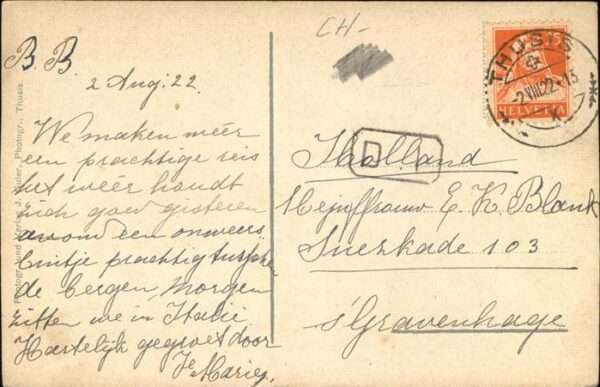 CH-
B. B.
2 Aug. 22.
We maken méér
een prachtige reis
het wéér houdt
zich goed gisteren
avond een onweers
buitje prachtig tusschen
de bergen, morgen
zitten we in Italie
Hartelijk gegroet door
Je Marie.
Holland
Mejuffrouw E. K. Blank
Suezkade 103
s'Gravenhage
D
THUSIS
-2.VIII.22.-13
15
HELVETIA
Photogr. und Verlag J. Photogr., Thusis.